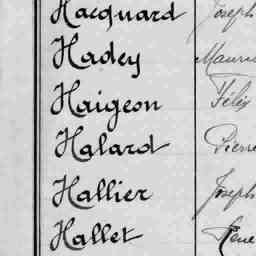 Hacquard Joseph
Hadey Mauri
Haigeon Félix
Halard Pierre
Hallier Joseph
Hallet René